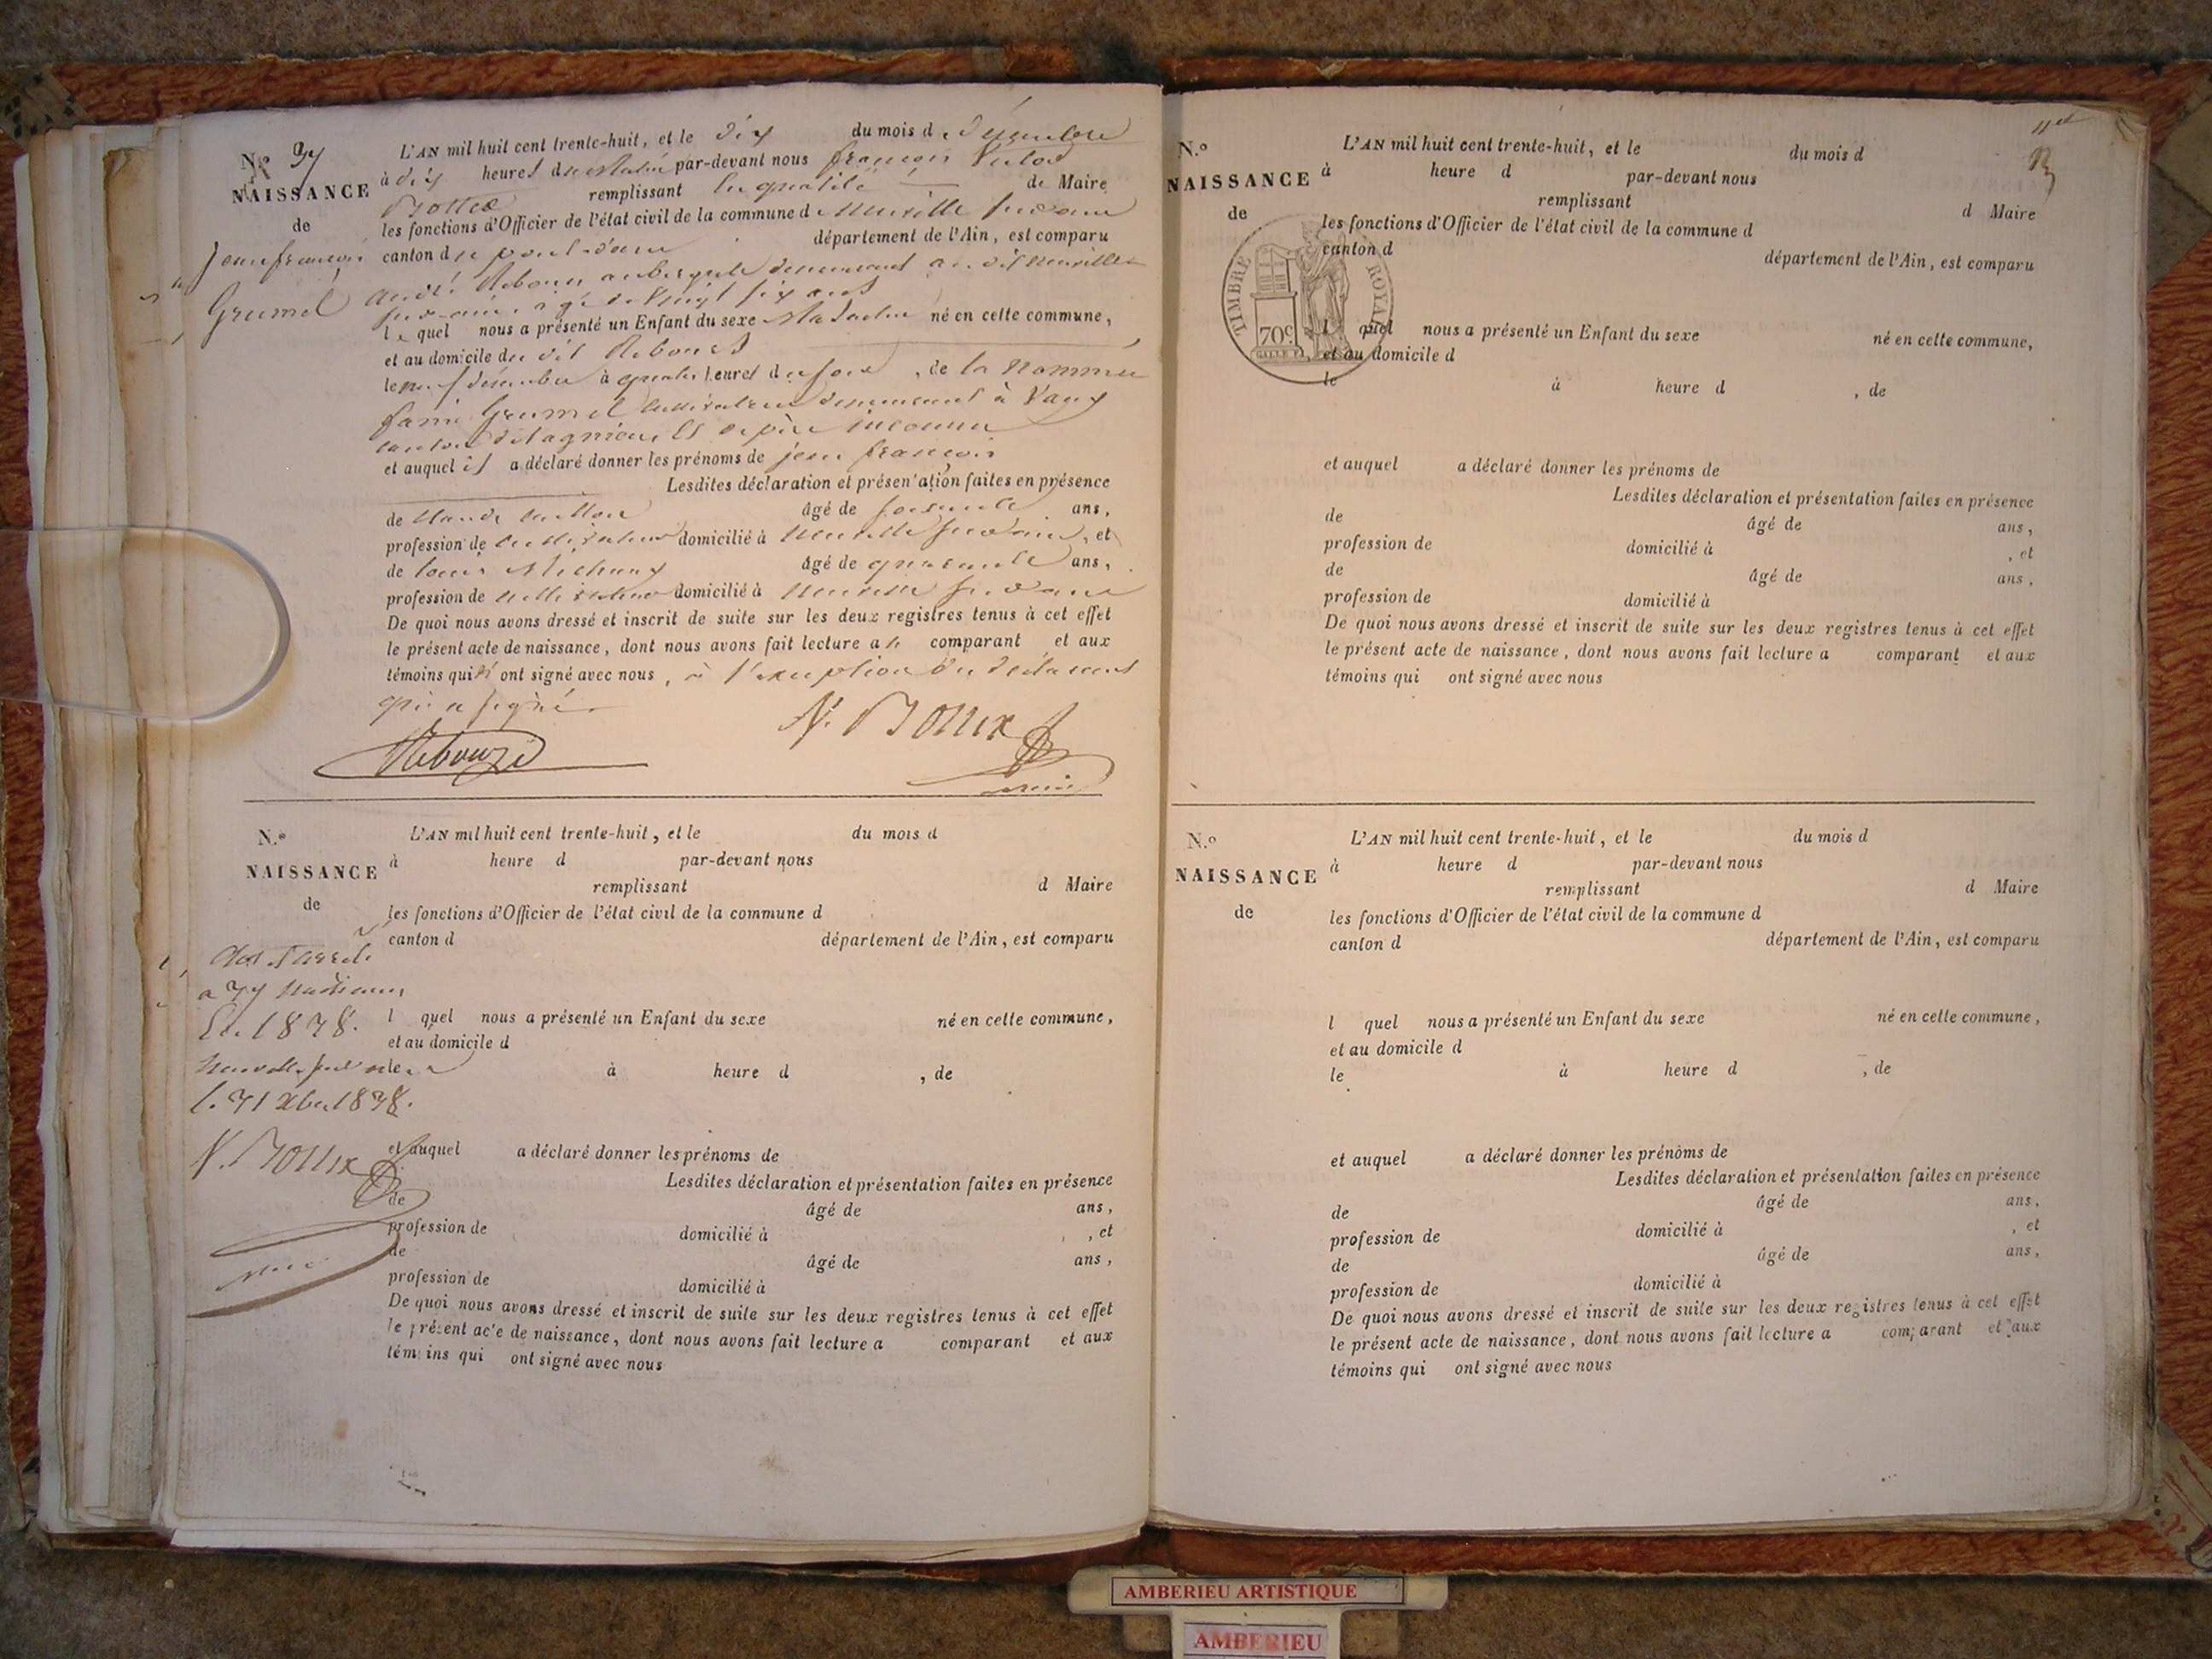 N.º 37
NAISSANCE
de
Jean françois
Grumel
L'AN mil huit cent trente-huit, et le dix du mois de décembre
à dix heures du Matin par-devant nous françois Victor
Bottex remplissant en qualité de Maire
les fonctions d'Officier de l'état civil de la commune de Neuville sur ain
canton de pont d'ain département de l'Ain, est comparu
andré Rebours aubergiste demeurant au dit Neuville
sur ain, agé de Vingt six ans
lequel nous a présenté un Enfant du sexe Masculin né en cette commune,
et au domicile du dit Rebours
le neuf décembre à quatre heures du soir, de la Nommée
fanie Grumel cultivatrice demeurant à Vaux
canton de lagnieu Et de père inconnu
et auquel il a déclaré donner les prénoms de jean françois
Lesdites déclaration et présentation faites en présence
de Claude âgé de soixante ans,
profession de cultivateur domicilié à Neuville sur ain, et
de louis Michaux âgé de quarante ans,
profession de cultivateur domicilié à Neuville sur ain
De quoi nous avons dressé et inscrit de suite sur les deux registres tenus à cet effet
le présent acte de naissance, dont nous avons fait lecture au comparant et aux
témoins qui ont signé avec nous, à l'exception du déclarant
qui a signé.
V. Bottex
maire
N.º
NAISSANCE
de
L'AN mil huit cent trente-huit, et le du mois d
à heure d par-devant nous
remplissant d Maire
les fonctions d'Officier de l'état civil de la commune d
canton d département de l'Ain, est comparu
l quel nous a présenté un Enfant du sexe né en cette commune,
et au domicile d
le à heure d , de
et auquel a déclaré donner les prénoms de
Lesdites déclaration et présentation faites en présence
de âgé de ans,
profession de domicilié à , et
de âgé de ans,
profession de domicilié à
De quoi nous avons dressé et inscrit de suite sur les deux registres tenus à cet effet
le présent acte de naissance, dont nous avons fait lecture a comparant et aux
témoins qui ont signé avec nous
a 37 naissances
En 1838.
Neuville sur ain
le 31 Xbre 1838.
V. Bottex
maire
N.º
NAISSANCE
de
L'AN mil huit cent trente-huit, et le du mois d
à heure d par-devant nous
remplissant d Maire
les fonctions d'Officier de l'état civil de la commune d
canton d département de l'Ain, est comparu
TIMBRE ROYAL
70c.
l quel nous a présenté un Enfant du sexe né en cette commune,
et au domicile d
le à heure d , de
et auquel a déclaré donner les prénoms de
Lesdites déclaration et présentation faites en présence
de âgé de ans,
profession de domicilié à , et
de âgé de ans,
profession de domicilié à
De quoi nous avons dressé et inscrit de suite sur les deux registres tenus à cet effet
le présent acte de naissance, dont nous avons fait lecture a comparant et aux
témoins qui ont signé avec nous
N.º
NAISSANCE
de
L'AN mil huit cent trente-huit, et le du mois d
à heure d par-devant nous
remplissant d Maire
les fonctions d'Officier de l'état civil de la commune d
canton d département de l'Ain, est comparu
l quel nous a présenté un Enfant du sexe né en cette commune,
et au domicile d
le à heure d , de
et auquel a déclaré donner les prénoms de
Lesdites déclaration et présentation faites en présence
de âgé de ans,
profession de domicilié à , et
de âgé de ans,
profession de domicilié à
De quoi nous avons dressé et inscrit de suite sur les deux registres tenus à cet effet
le présent acte de naissance, dont nous avons fait lecture a comparant et aux
témoins qui ont signé avec nous
AMBERIEU ARTISTIQUE
AMBERIEU